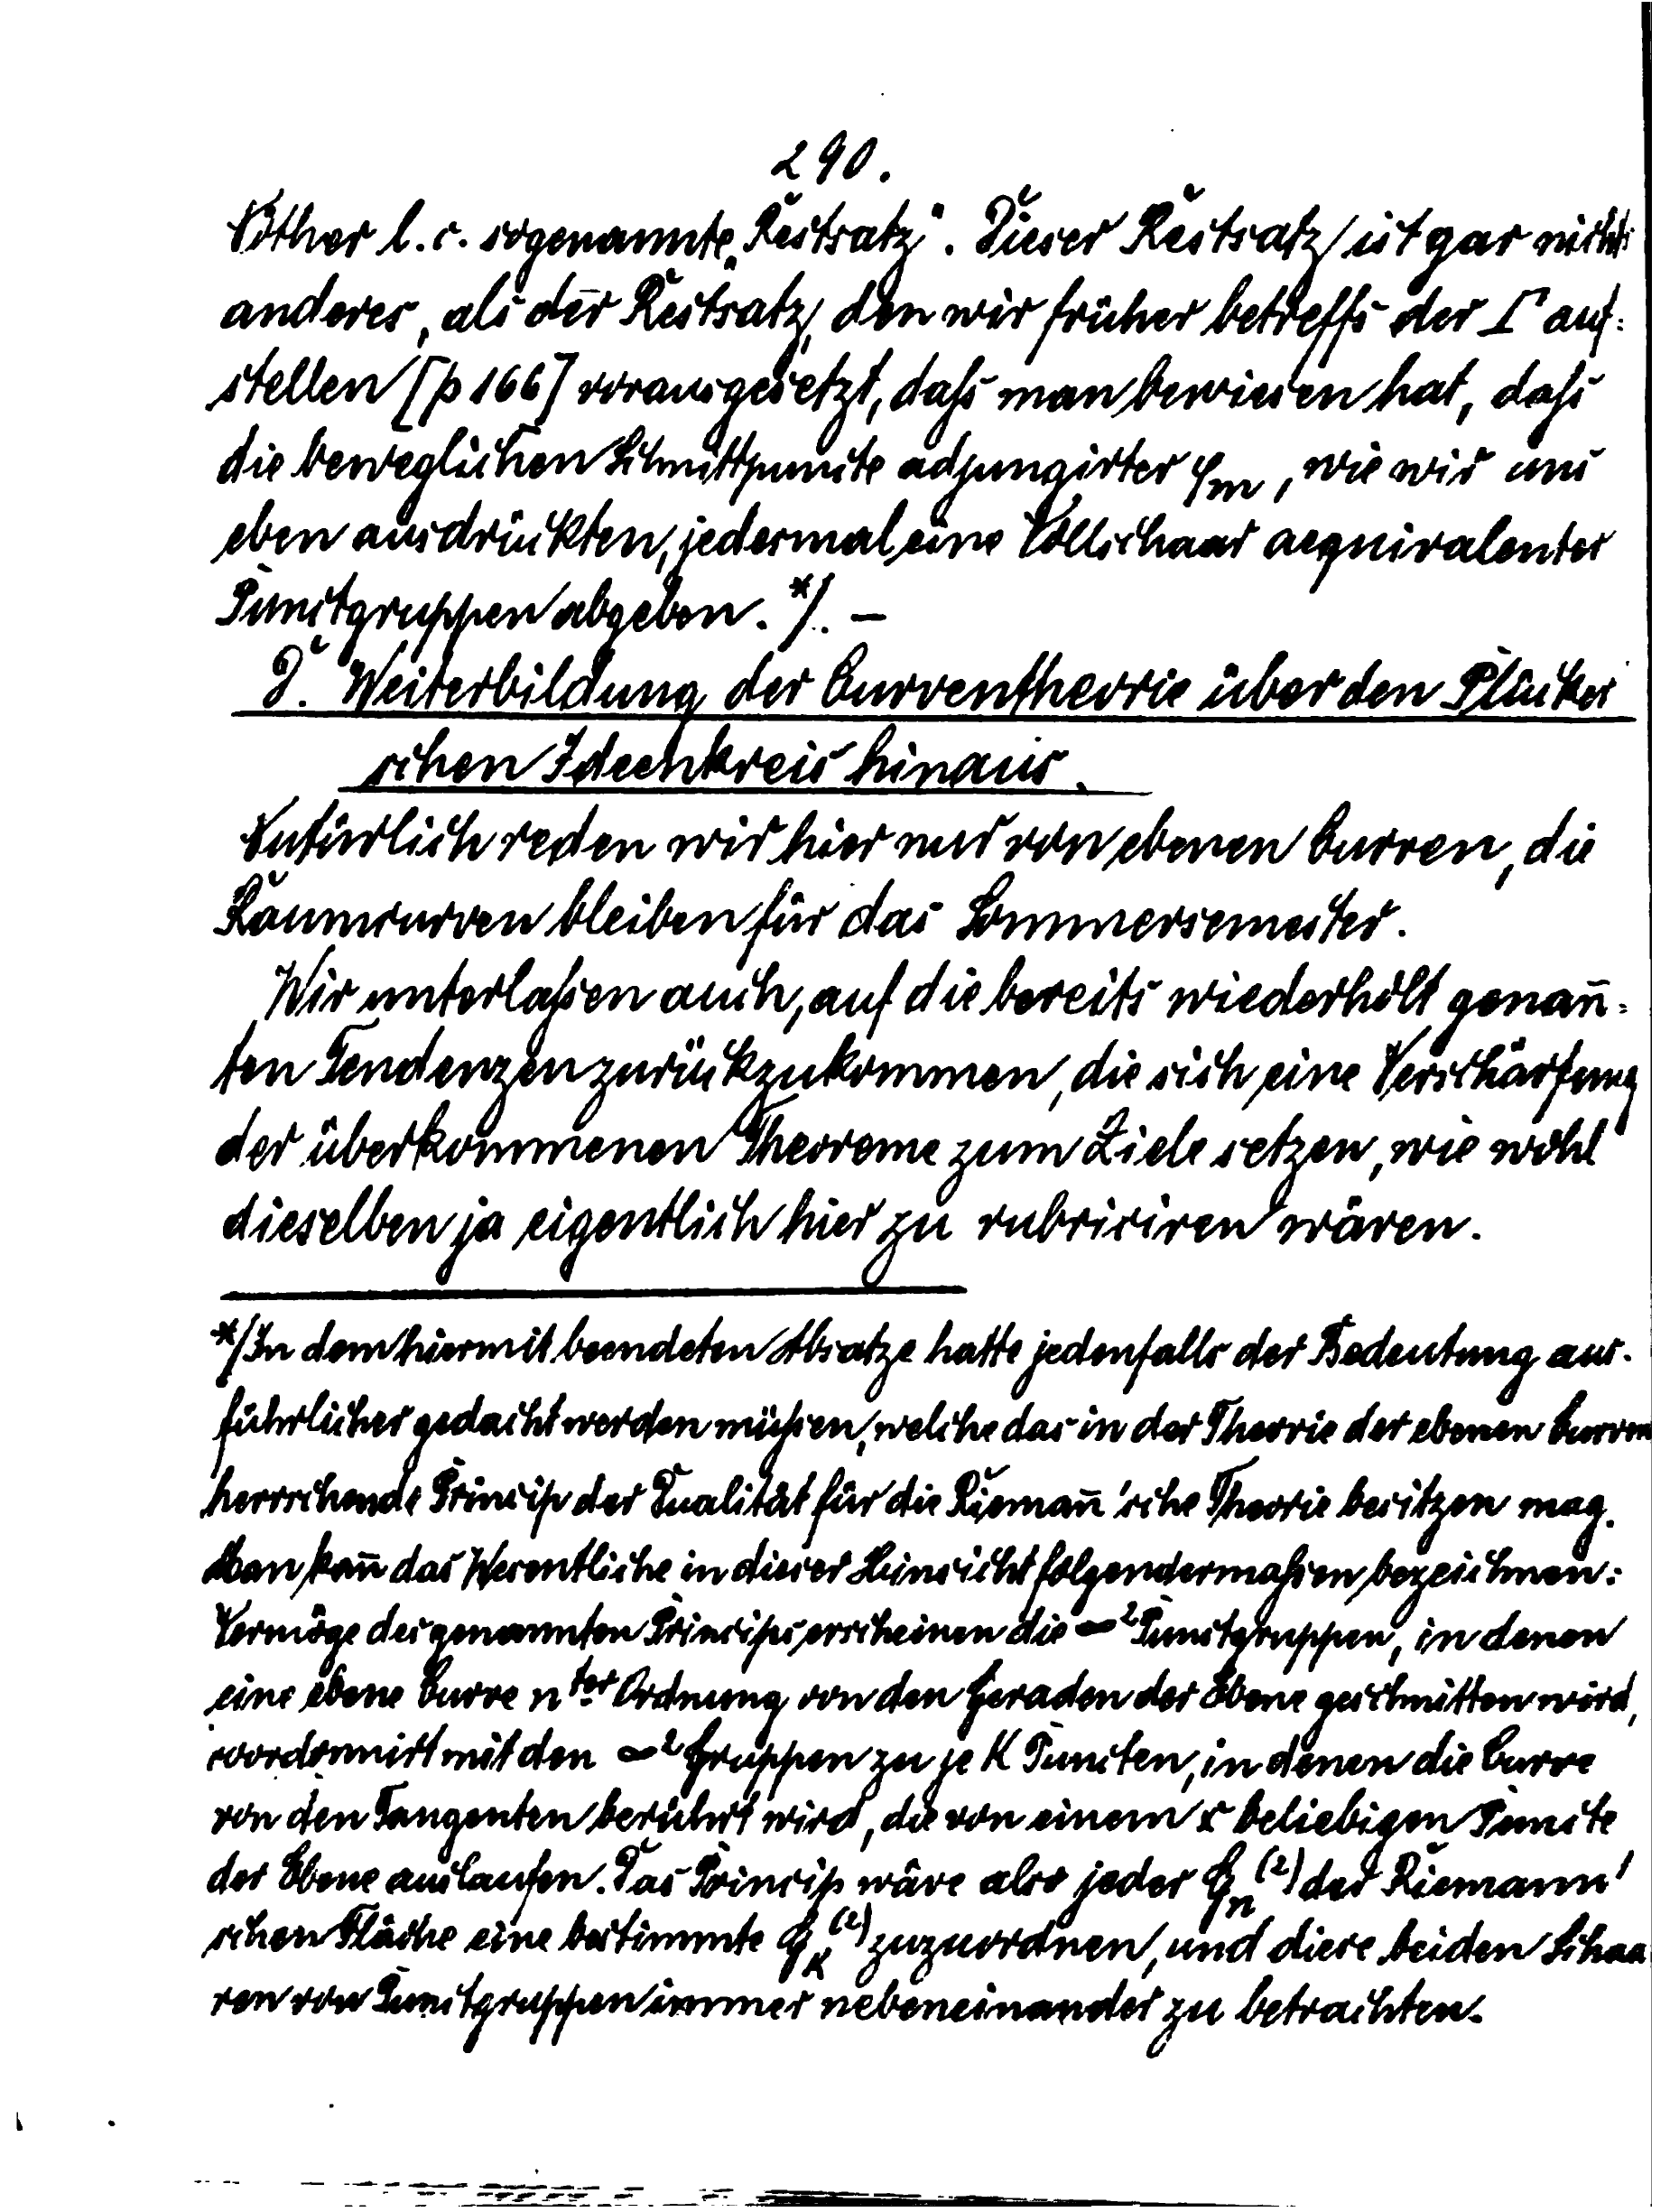 290.
Nöther l. c. sogenannte „Restsatz“. Dieser Restsatz ist gar nichts
anderes, als der Restsatz, den wir früher betreffs der Γ auf-
stellen [p 166] vorausgesetzt, daſs man bewiesen hat, daſs
die beweglichen Schnittpuncte adjungirter φm, wie wir uns
eben ausdrückten, jedesmal eine Vollschaar aequivalenter
Punctgruppen abgeben. *). –
J. Weiterbildung der Curventheorie über den Plücker
schen Ideenkreis hinaus.
Natürlich reden wir hier nur von ebenen Curven, die
Raumcurven bleiben für das Sommersemester.
Wir unterlaſsen auch, auf die bereits wiederholt genan̄-
ten Tendenzen zurückzukommen, die sich eine Verschärfung
der überkommenen Theoreme zum Ziele setzen, wie wohl
dieselben ja eigentlich hier zu rubriciren wären.
*) In dem hiermit beendeten Absatze hatte jedenfalls der Bedeutung aus-
führlicher gedacht werden müſsen, welche das in der Theorie der ebenen Curven
herrschende Princip der Dualität für die Rieman̄'sche Theorie besitzen mag.
Man kan̄ das Wesentliche in dieser Hinsicht folgendermaſsen bezeichnen:
Vermöge des genannten Princips erscheinen die ∞² Punctgruppen, in denen
eine ebene Curve nter Ordnung von den Geraden der Ebene geschnitten wird,
coordonnirt mit den ∞² Gruppen zu je K Puncten, in denen die Curve
von den Tangenten berührt wird, die von einem beliebigen Puncte
der Ebene auslaufen. Das Princip wäre also jeder Gn(2) der Riemann'
schen Fläche eine bestimmte GK(2) zuzuordnen, und diese beiden Schaa
ren von Punctgruppen immer nebeneinander zu betrachten.